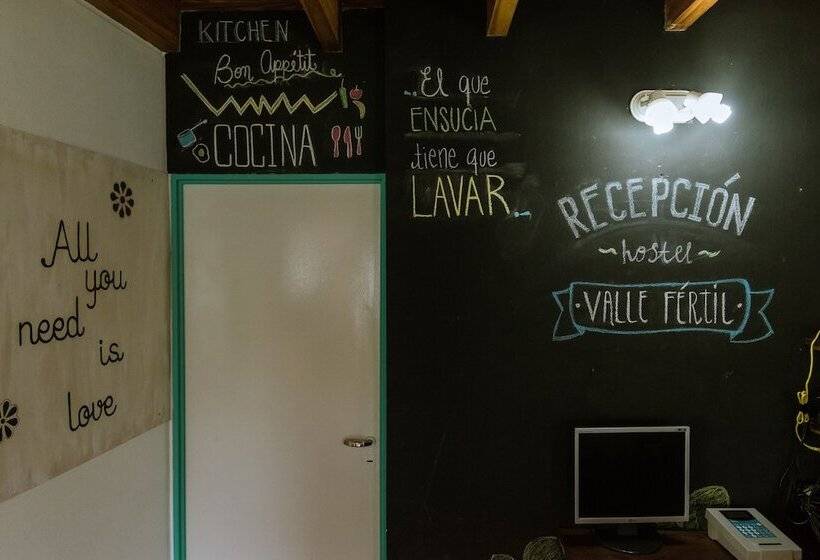 All
you
need
is
love
KITCHEN
Bon Appétit
COCINA
..El que
ENSUCIA
tiene que
LAVAR..
RECEPCIÓN
~hostel~
·VALLE FÉRTIL·